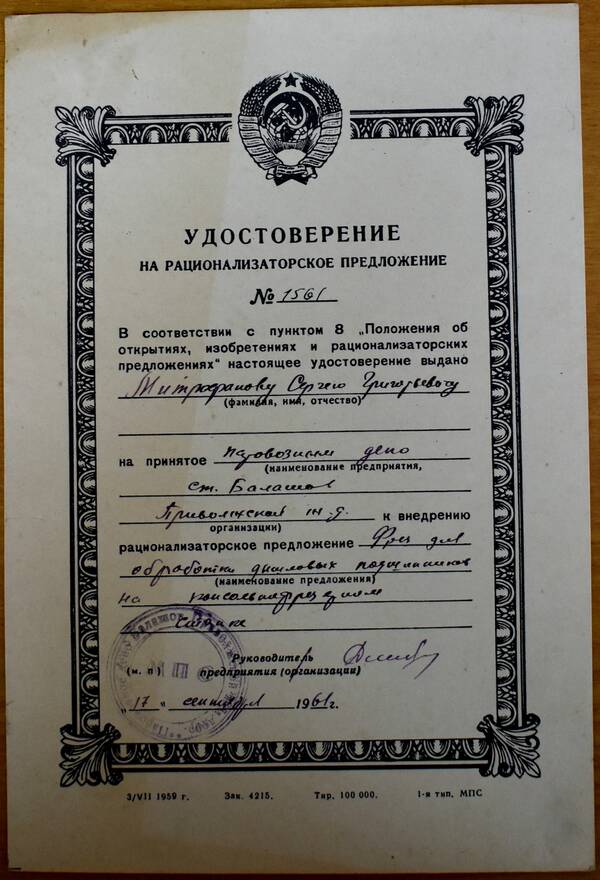 УДОСТОВЕРЕНИЕ
НА РАЦИОНАЛИЗАТОРСКОЕ ПРЕДЛОЖЕНИЕ
№ 1561
В соответствии с пунктом 8 „Положения об
открытиях, изобретениях и рационализаторских
предложениях" настоящее удостоверение выдано
Митрофанову Сергею Григорьевичу
(фамилия, имя, отчество)
на принятое паровозным депо
(наименование предприятия,
ст. Балашов
Приволжской ж.д. к внедрению
организации)
рационализаторское предложение Фрез для
обработки дышловых подшипников
(наименование предложения)
на консольнофрезерном
станке
Руководитель
(м. п.) предприятия (организации)
„17 " сентября 1961 г.
3/VII 1959 г. Зак. 4215. Тир. 100 000. 1-я тип. МПС